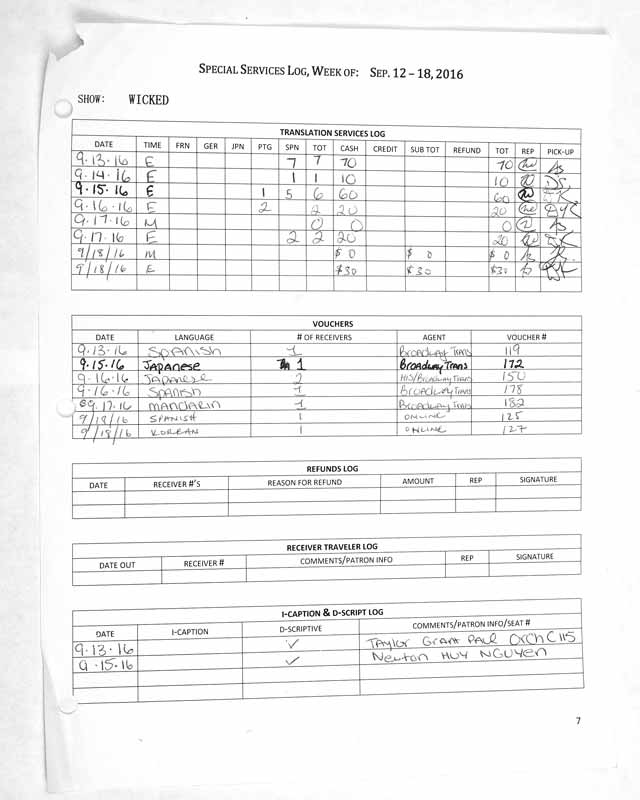 SPECIAL SERVICES LOG, WEEK OF: SEP. 12 – 18, 2016
SHOW: WICKED
TRANSLATION SERVICES LOG
DATE TIME FRN GER JPN PTG SPN TOT CASH CREDIT SUB TOT REFUND TOT REP PICK-UP
9.13.16 E 7 7 70 70
9.14.16 E 1 1 10 10 DS
9.15.16 E 1 5 6 60 60
9.16.16 E 2 2 20 20
9.17.16 M 0 0 0
9.17.16 E 2 2 20 20
9/18/16 M $0 $0 $0
9/18/16 E $30 $30 $30
VOUCHERS
DATE LANGUAGE # OF RECEIVERS AGENT VOUCHER #
9.13.16 SPANISH 1 Broadway Trans 119
9.15.16 Japanese 1 Broadway Trans 172
9.16.16 JAPANESE 2 HIS/Broadway Trans 150
9.16.16 SPANISH 1 Broadway Trans 178
9.17.16 MANDARIN 1 Broadway Trans 182
9/18/16 SPANISH 1 ONLINE 125
9/18/16 KOREAN 1 ONLINE 127
REFUNDS LOG
DATE RECEIVER #'S REASON FOR REFUND AMOUNT REP SIGNATURE
RECEIVER TRAVELER LOG
DATE OUT RECEIVER # COMMENTS/PATRON INFO REP SIGNATURE
I-CAPTION & D-SCRIPT LOG
DATE I-CAPTION D-SCRIPTIVE COMMENTS/PATRON INFO/SEAT #
9.13.16 ✓ Taylor Grant Paul Orch C115
9.15.16 ✓ Newton HUY NGUYEN
7